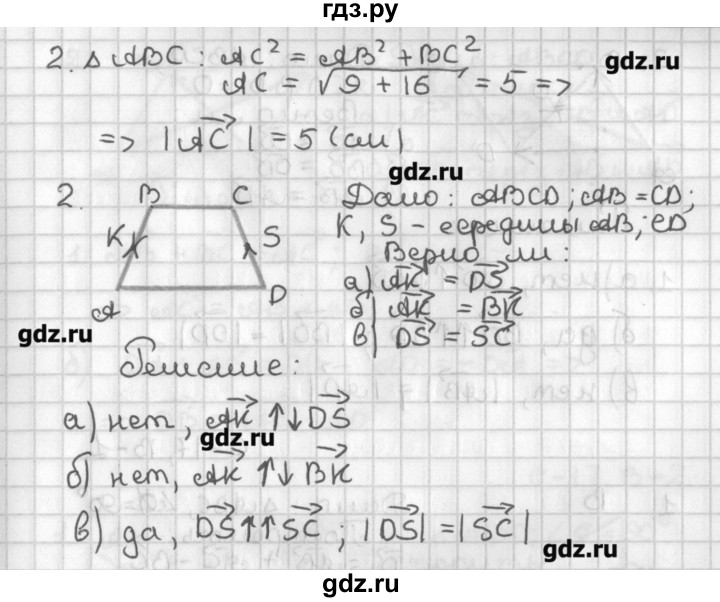 гдз.ру
2. △ ABC : AC² = AB² + BC²
gdz.ru
AC = √9 + 16 = 5 =>
=> |AC| = 5 (см)
gdz.ru
2. B C
K S
A D
Дано: ABCD; AB = CD;
K, S - середины AB, CD
Верно ли:
а) AK = DS
б) AK = BK
в) DS = SC
gdz.ru
Решение:
а) нет, AK ↑↓ DS
gdz.ru
б) нет, AK ↑↓ BK
в) да, DS ↑↑ SC ; |DS| = |SC|
gdz.ru
gdz.ru